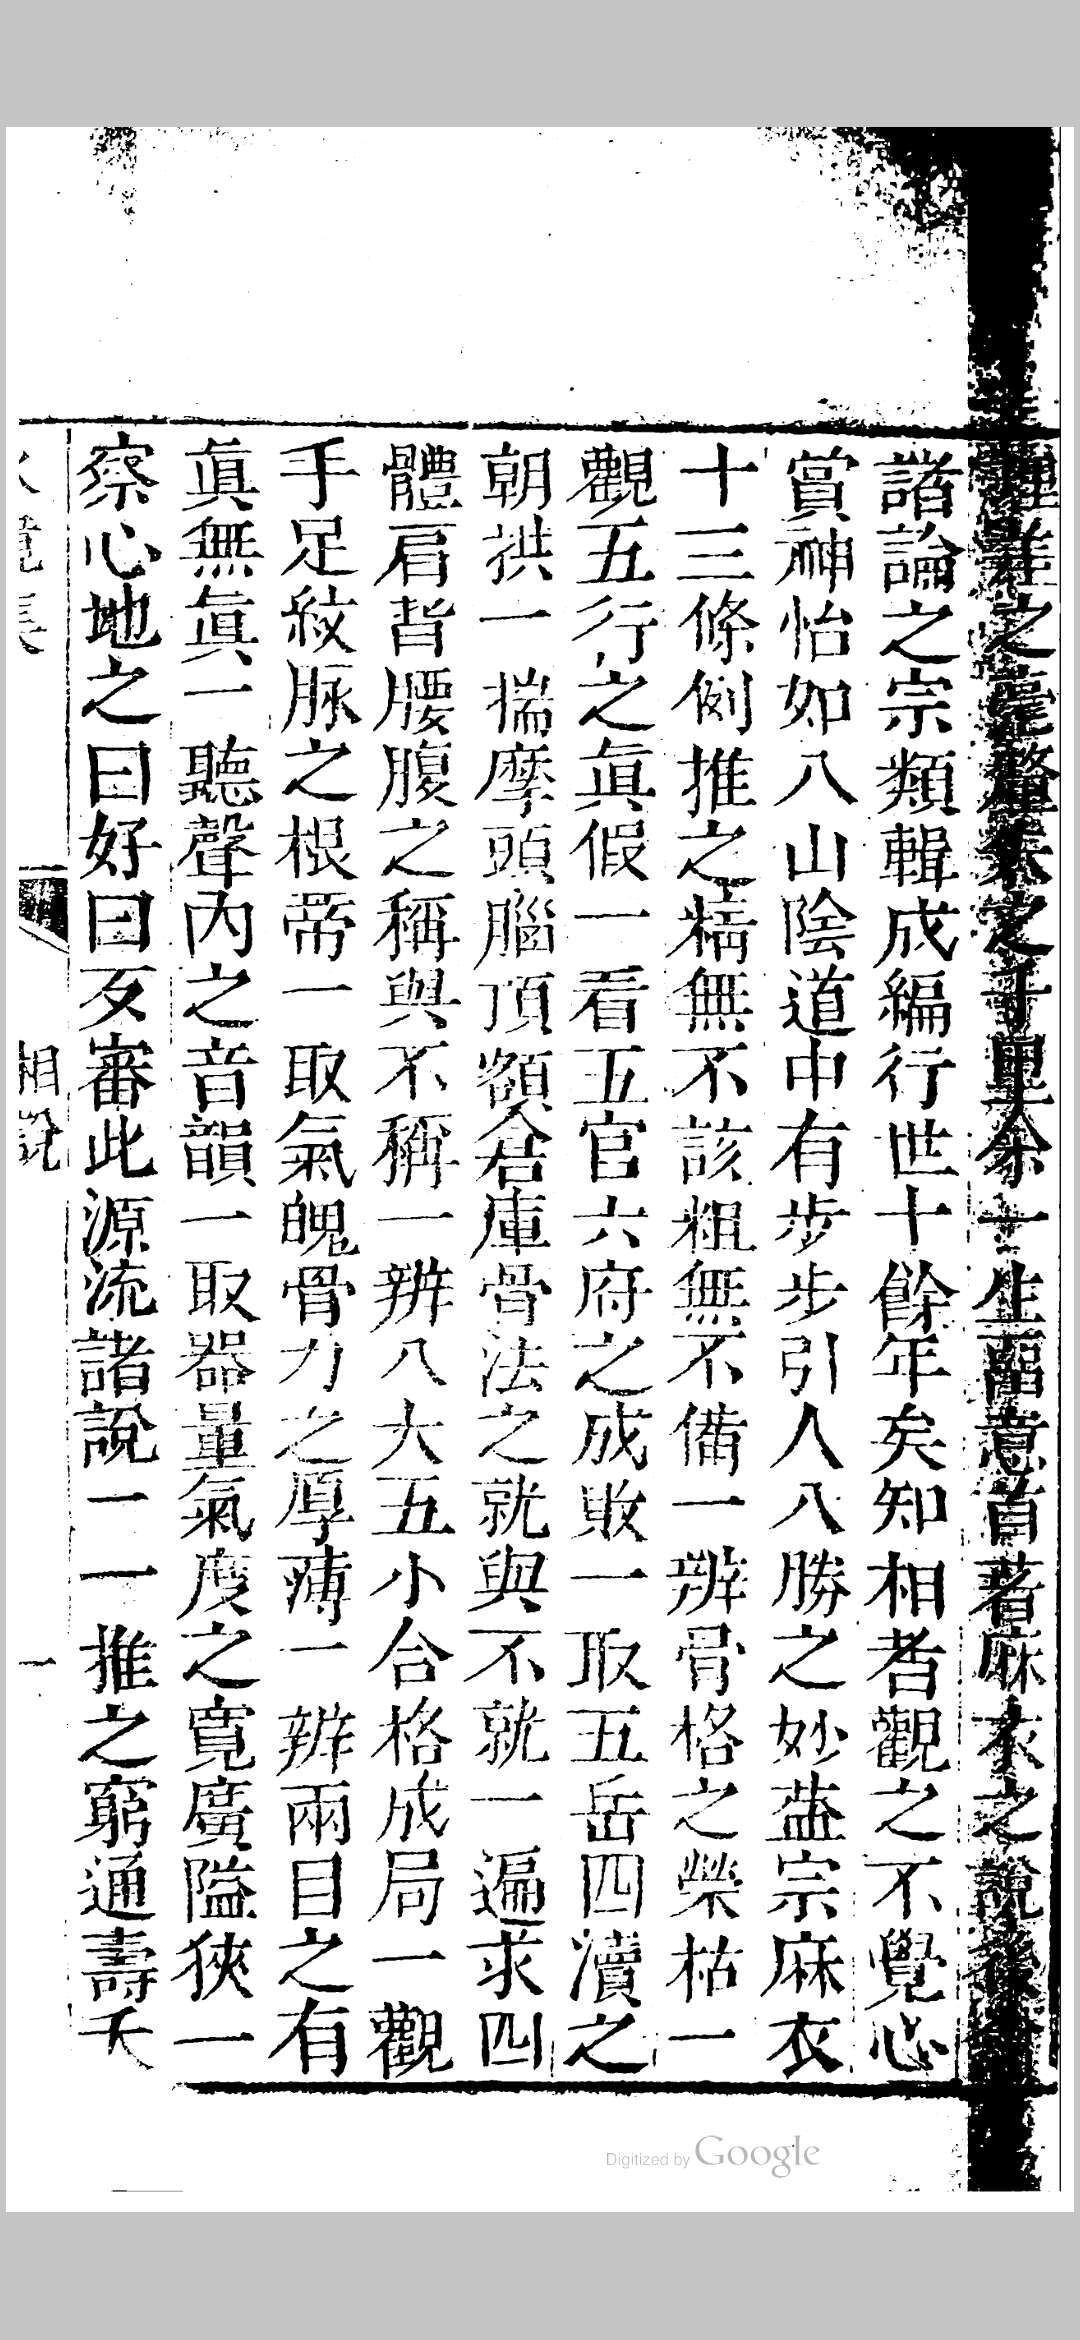 理差之毫釐失之千里余一生留意首著麻衣之說後
諸論之宗類輯成編行世十餘年矣知相者觀之不覺心
賞神怡如入山陰道中有步步引人入勝之妙葢宗麻衣
十三條例推之精無不該粗無不備一辨骨格之榮枯一
觀五行之眞假一看五官六府之成敗一取五岳四瀆之
朝拱一揣摩頭腦頂額倉庫骨法之就與不就一遍求四
體肩背腰腹之稱與不稱一辨八大五小合格成局一觀
手足紋脉之根蒂一取氣魄骨力之厚薄一辨兩目之有
眞無眞一聽聲內之音韻一取器量氣度之寬廣隘狹一
察心地之曰好曰歹審此源流諸說一一推之窮通壽夭
水鏡集 相說 一
Digitized by Google